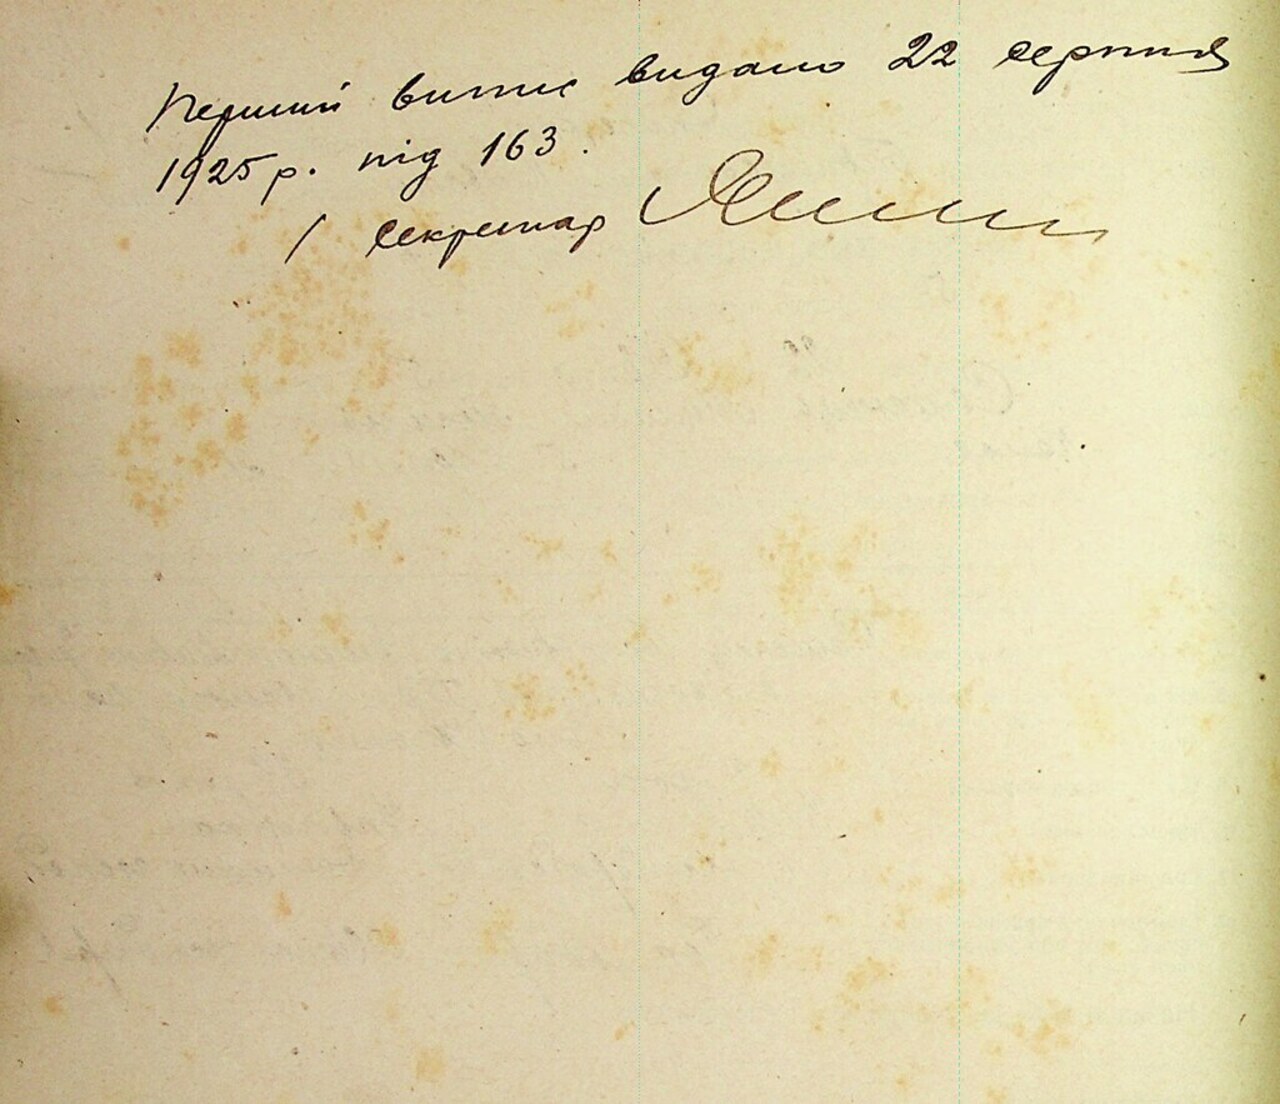 Перший випис видано 22 серпня
1925 р. під 163.
/ Секретар